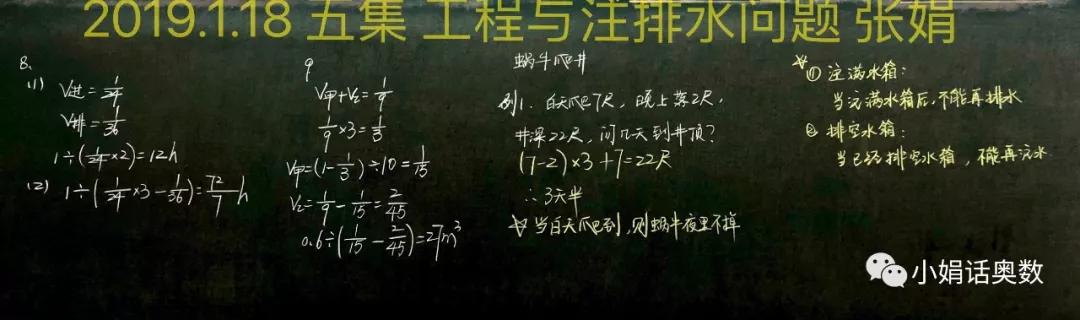 2019.1.18 五集 工程与注排水问题 张娟
8、
(1) V进=1/24
V排=1/36
1÷(1/24×2)=12h
(2) 1÷(1/24×3-1/36)=72/7 h
9
V甲+V乙=1/9
1/9×3=1/3
V甲=(1-1/3)÷10=1/15
V乙=1/9-1/15=2/45
0.6÷(1/15-2/45)=27m³
蜗牛爬井
例1. 白天爬7尺，晚上落2尺，
井深22尺，问几天到井顶？
(7-2)×3+7=22尺
∴3天半
☆当白天爬到，则蜗牛夜里不掉
☆① 注满水箱：
当注满水箱后，不能再排水
② 排空水箱：
当已经排空水箱，不能再注水
小娟话奥数